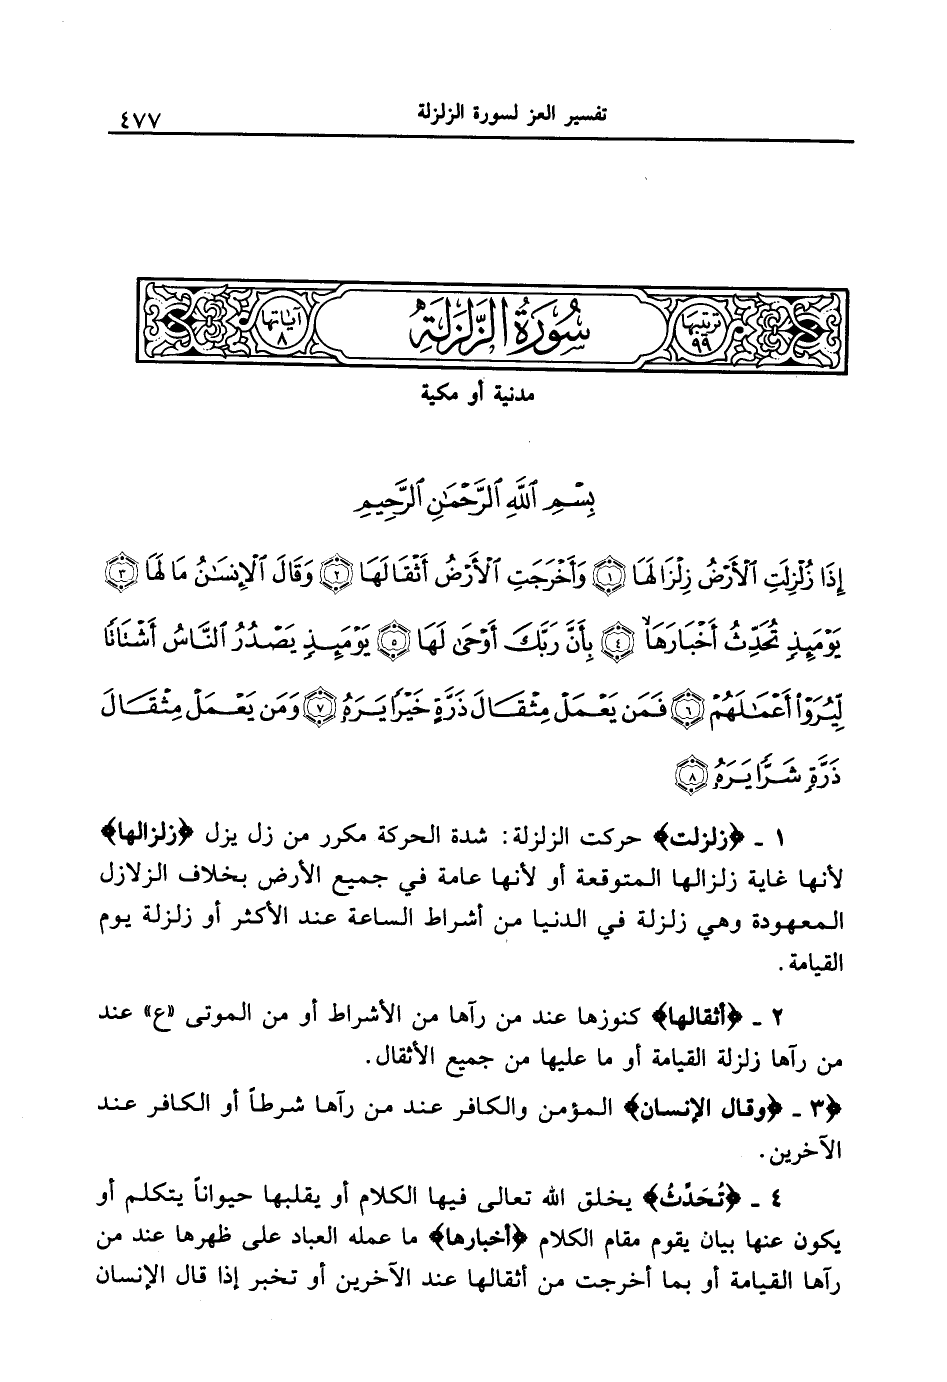 تفسير العز لسورة الزلزلة ٤٧٧
ترتيبها ٩٩ سُورَةُ الزَّلْزَلَةِ آياتها ٨
مدنية أو مكية
بِسْمِ ٱللَّهِ ٱلرَّحْمَٰنِ ٱلرَّحِيمِ
إِذَا زُلْزِلَتِ ٱلْأَرْضُ زِلْزَالَهَا ١ وَأَخْرَجَتِ ٱلْأَرْضُ أَثْقَالَهَا ٢ وَقَالَ ٱلْإِنسَٰنُ مَا لَهَا ٣
يَوْمَئِذٍ تُحَدِّثُ أَخْبَارَهَا ٤ بِأَنَّ رَبَّكَ أَوْحَىٰ لَهَا ٥ يَوْمَئِذٍ يَصْدُرُ ٱلنَّاسُ أَشْتَاتًا
لِّيُرَوْا۟ أَعْمَٰلَهُمْ ٦ فَمَن يَعْمَلْ مِثْقَالَ ذَرَّةٍ خَيْرًا يَرَهُۥ ٧ وَمَن يَعْمَلْ مِثْقَالَ
ذَرَّةٍ شَرًّا يَرَهُۥ ٨
١ ـ ﴿زلزلت﴾ حركت الزلزلة: شدة الحركة مكرر من زل يزل ﴿زلزالها﴾
لأنها غاية زلزالها المتوقعة أو لأنها عامة في جميع الأرض بخلاف الزلازل
المعهودة وهي زلزلة في الدنيا من أشراط الساعة عند الأكثر أو زلزلة يوم
القيامة.
٢ ـ ﴿أثقالها﴾ كنوزها عند من رآها من الأشراط أو من الموتى «ع» عند
من رآها زلزلة القيامة أو ما عليها من جميع الأثقال.
﴿٣ ـ ﴿وقال الإنسان﴾ المؤمن والكافر عند من رآها شرطاً أو الكافر عند
الآخرين.
٤ ـ ﴿تُحَدِّثُ﴾ يخلق الله تعالى فيها الكلام أو يقلبها حيواناً يتكلم أو
يكون عنها بيان يقوم مقام الكلام ﴿أخبارها﴾ ما عمله العباد على ظهرها عند من
رآها القيامة أو بما أخرجت من أثقالها عند الآخرين أو تخبر إذا قال الإنسان